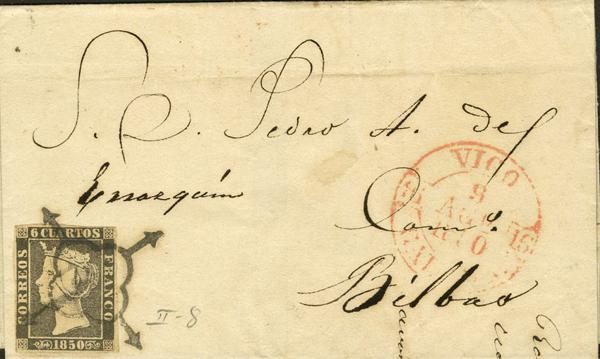 S. D. Pedro A. de
Errazquin
Com.o
Bilbao
VICO
8
AGO
1850
6 CUARTOS
CORREOS
FRANCO
1850
II-8